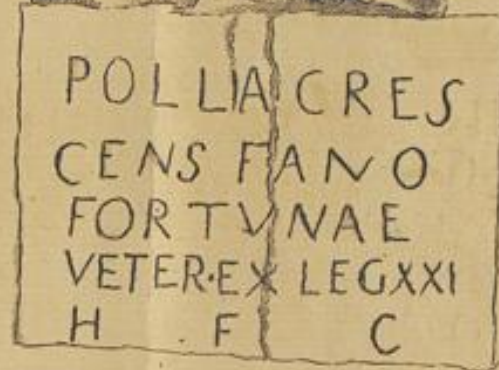 POLLIA CRES
CENS FANO
FORTVNAE
VETER·EX LEGXXI
H F C